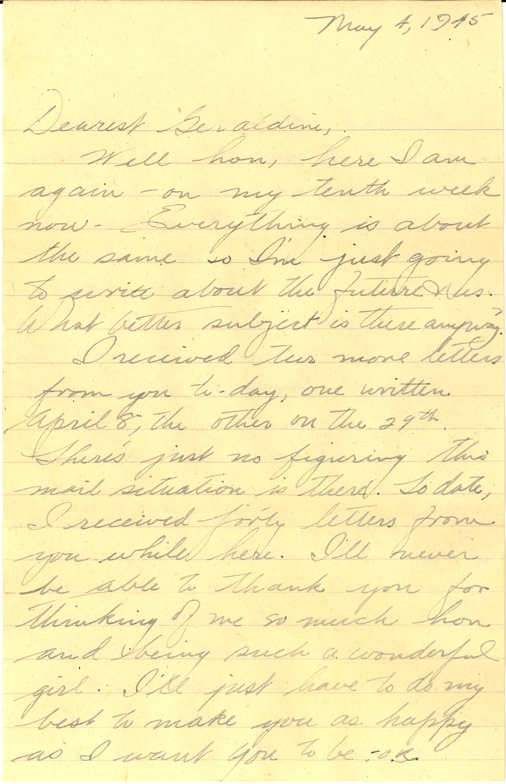 May 4, 1945
Dearest Geraldine,
Well hon, here I am
again - on my tenth week
now. Everything is about
the same so I'm just going
to write about the future & us.
What better subject is there anyway.
I received two more letters
from you to-day, one written
April 8, the other on the 29th.
There's just no figuring this
mail situation is there. To date,
I received forty letters from
you while here. I'll never
be able to thank you for
thinking of me so much hon
and being such a wonderful
girl. I'll just have to do my
best to make you as happy
as I want you to be - o.k.